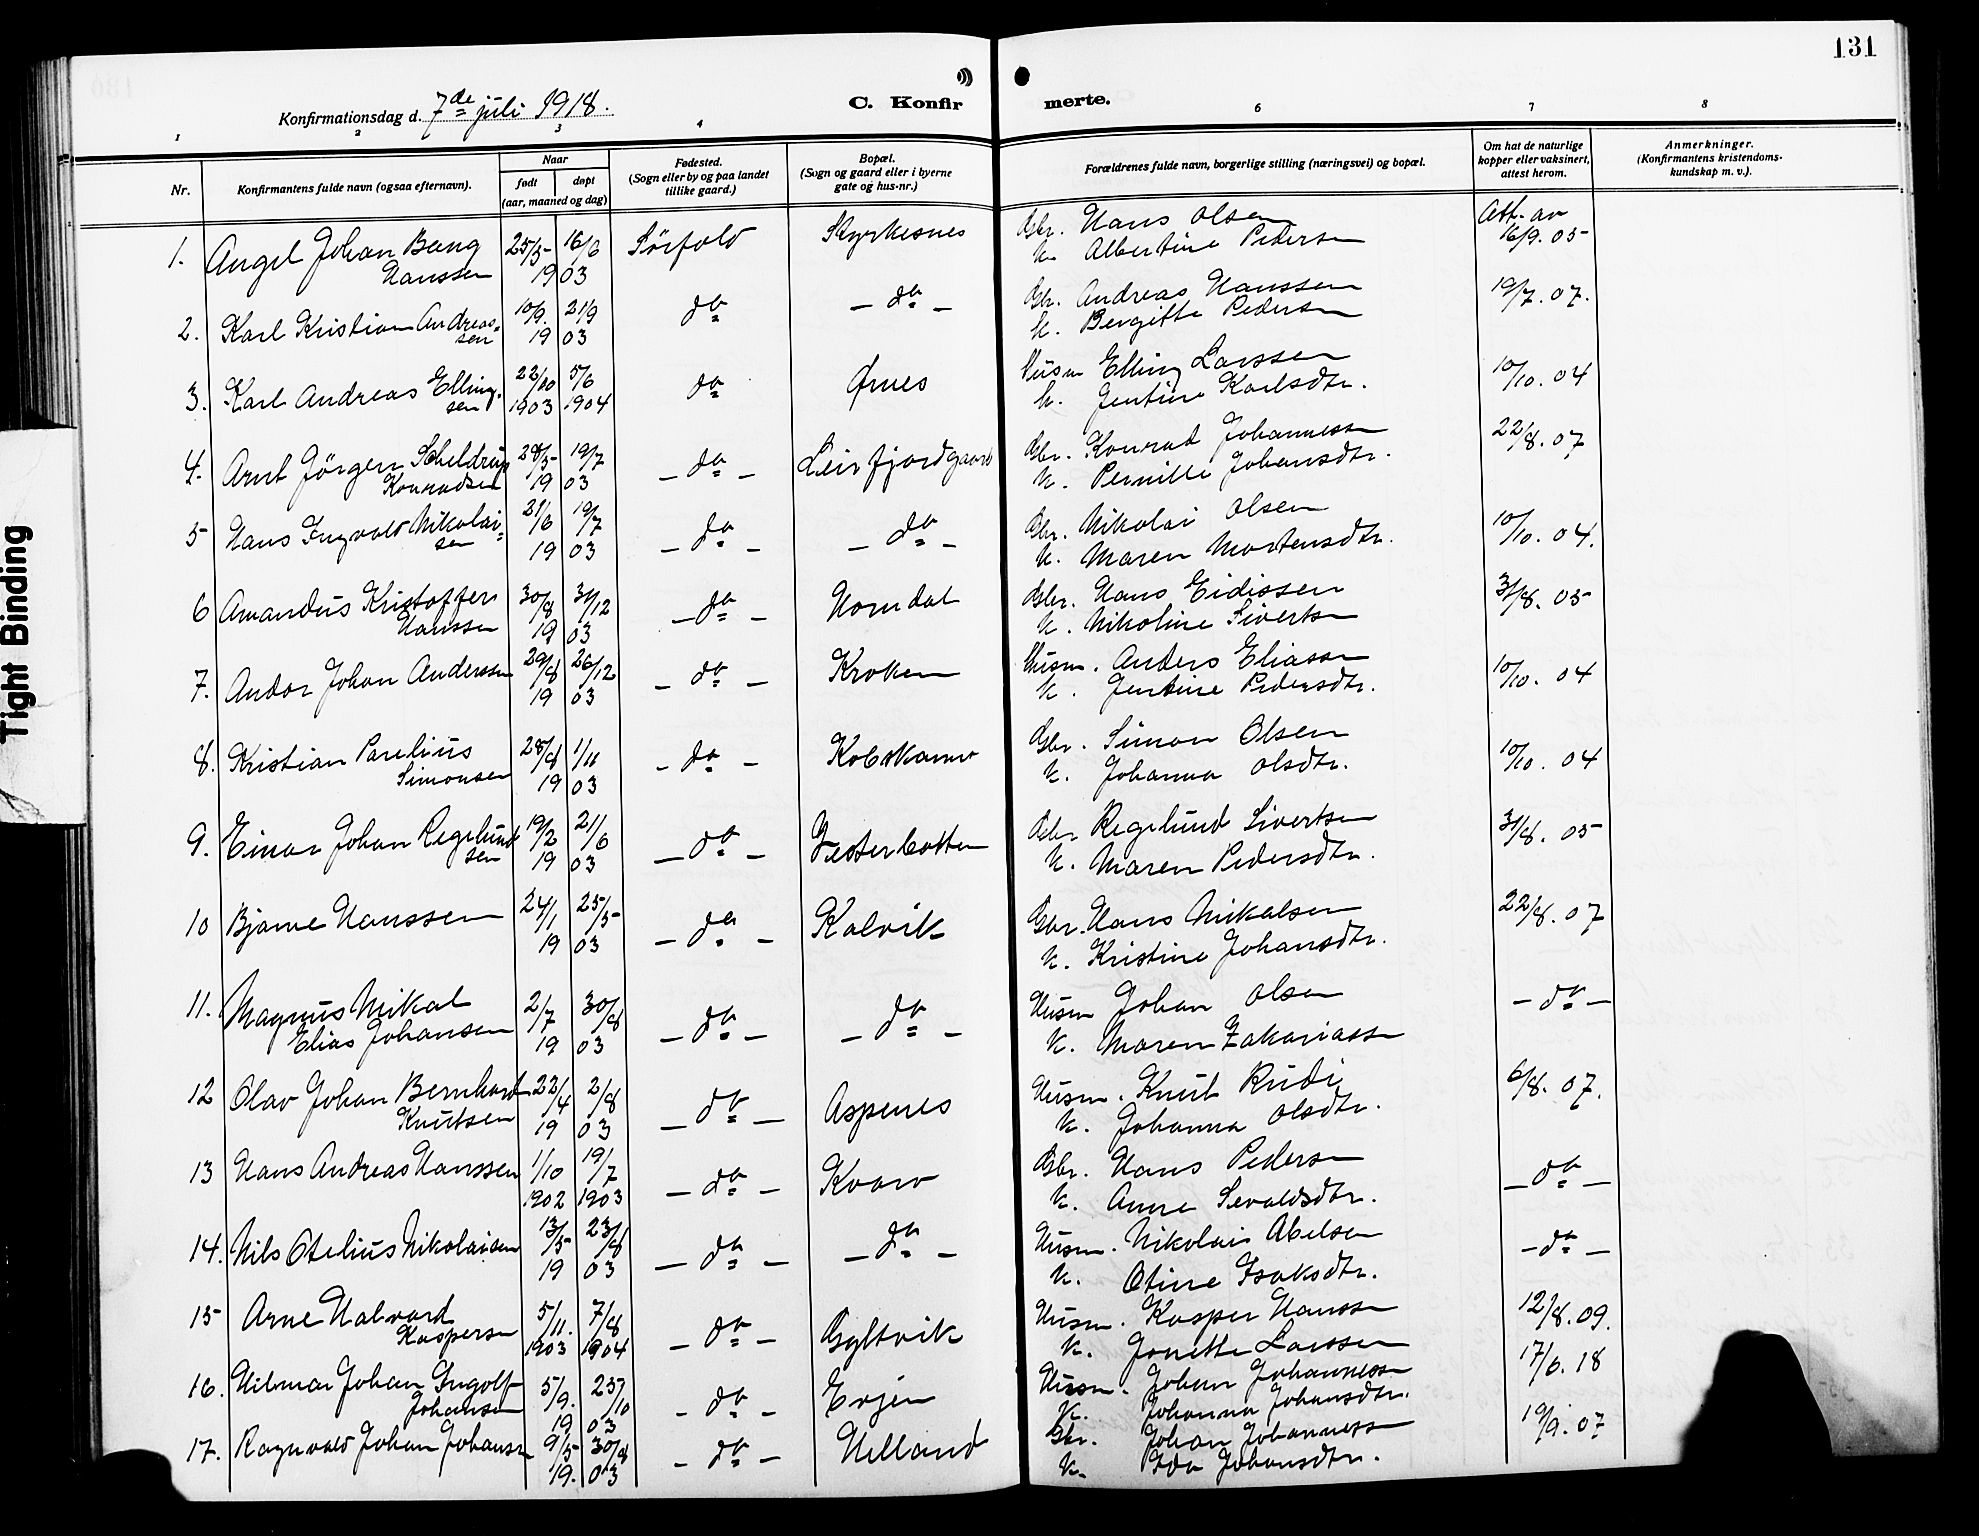 131
Konfirmationsdag d. 7de juli 1918.
C. Konfir
merte.
1 2 3 4 6 7 8
Nr.
Konfirmantens fulde navn (ogsaa efternavn).
Naar
født døpt
(aar, maaned og dag)
Fødested.
(Sogn eller by og paa landet
tillike gaard.)
Bopæl.
(Sogn og gaard eller i byerne
gate og hus-nr.)
Forældrenes fulde navn, borgerlige stilling (næringsvei) og bopæl.
Om hat de naturlige
kopper eller vaksinert,
attest herom.
Anmerkninger.
(Konfirmantens kristendoms-
kundskap m. v.).
1. Angel Johan Bang 25/5 16/6 Sörfold Styrkesnes Gbr. Hans Olsen Att. av
Hanssen 19 03 h. Albertine Pedersen 16/9. 05
2. Karl Kristian Andreas- 10/9. 21/9 do - do - Gbr. Andreas Hanssen 19/7. 07.
sen 19 03 h. Bergitte Pedersen
3. Karl Andreas Elling- 22/10 5/6 do Ørnes Husm Elling Larssen 10/10. 04
sen 1903 1904 h. Jentine Karlsdtr.
4. Arnt Jörgen Scheldrup 28/5 19/7 - do - Leirfjordgaard Gbr. Konrad Johannessen 22/8. 07
Konradsen 19 03 h. Pernille Johansdtr.
5 Hans Ingvald Nikolai- 21/6 19/7 - do - - do - Gbr. Nikolai Olsen 10/10. 04.
sen 19 03 h. Maren Mortensdtr.
6 Amandus Kristoffer 30/8 31/12 - do - Horndal Gbr. Hans Eidissen 31/8. 05
Hanssen 19 03 h. Nikoline Sivertsen
7. Andor Johan Anderssen 29/8 26/12 - do - Kroken Husm. Anders Eliassen 10/10. 04
19 03 h. Jentine Pedersdtr.
8. Kristian Parelius 28/8 1/11 - do - Kobskarmo Gbr. Simon Olsen 10/10. 04
Simonsen 19 03 h. Johanna Olsdtr.
9. Einar Johan Regelund 19/2 21/6 - do - Vesterbotten Gbr Regelund Sivertsen 31/8. 05
sen 19 03 h. Maren Pedersdtr.
10 Bjarne Hanssen 24/1 25/5 - do - Kalvik Gbr. Hans Mikalsen 22/8. 07
19 03 h. Kristine Johansdtr.
11. Magnus Mikal 2/7 30/8 - do - - do - Husm Johan Olsen - do -
Elias Johansen 19 03 h. Maren Zakariassen
12 Olav Johan Bernhard 22/4 2/8 - do - Aspenes Husm. Knut Rudi 6/8. 07.
Knutsen 19 03 h. Johanna Olsdtr.
13 Hans Andreas Hanssen 1/10 19/7 - do - Kvarv Gbr. Hans Pedersen - do -
1902 1903 h. Anne Sevaldsdtr.
14. Nils Otelius Nikolaisen 13/5 23/8 - do - - do - Husm. Nikolai Abelsen - do -
19 03 h. Otine Isaksdtr.
15 Arne Halvard 5/11. 7/8 - do - Gyltvik Husm. Kasper Hanssen 12/8. 09.
Kaspersen 1903 1904 h. Jonette Larssen
16. Hilmar Johan Ingolf 5/9. 25/10 - do - Erjen Husm. Johan Johannessen 17/6. 18
Johansen 19 03 h. Johanna Johansdtr.
17. Ragnvald Johan Johansen 9/5 30/8 - do - Helland Gbr. Johan Johannessen 19/9. 07
19. 03 h. Ida Johansdtr.
Tight Binding